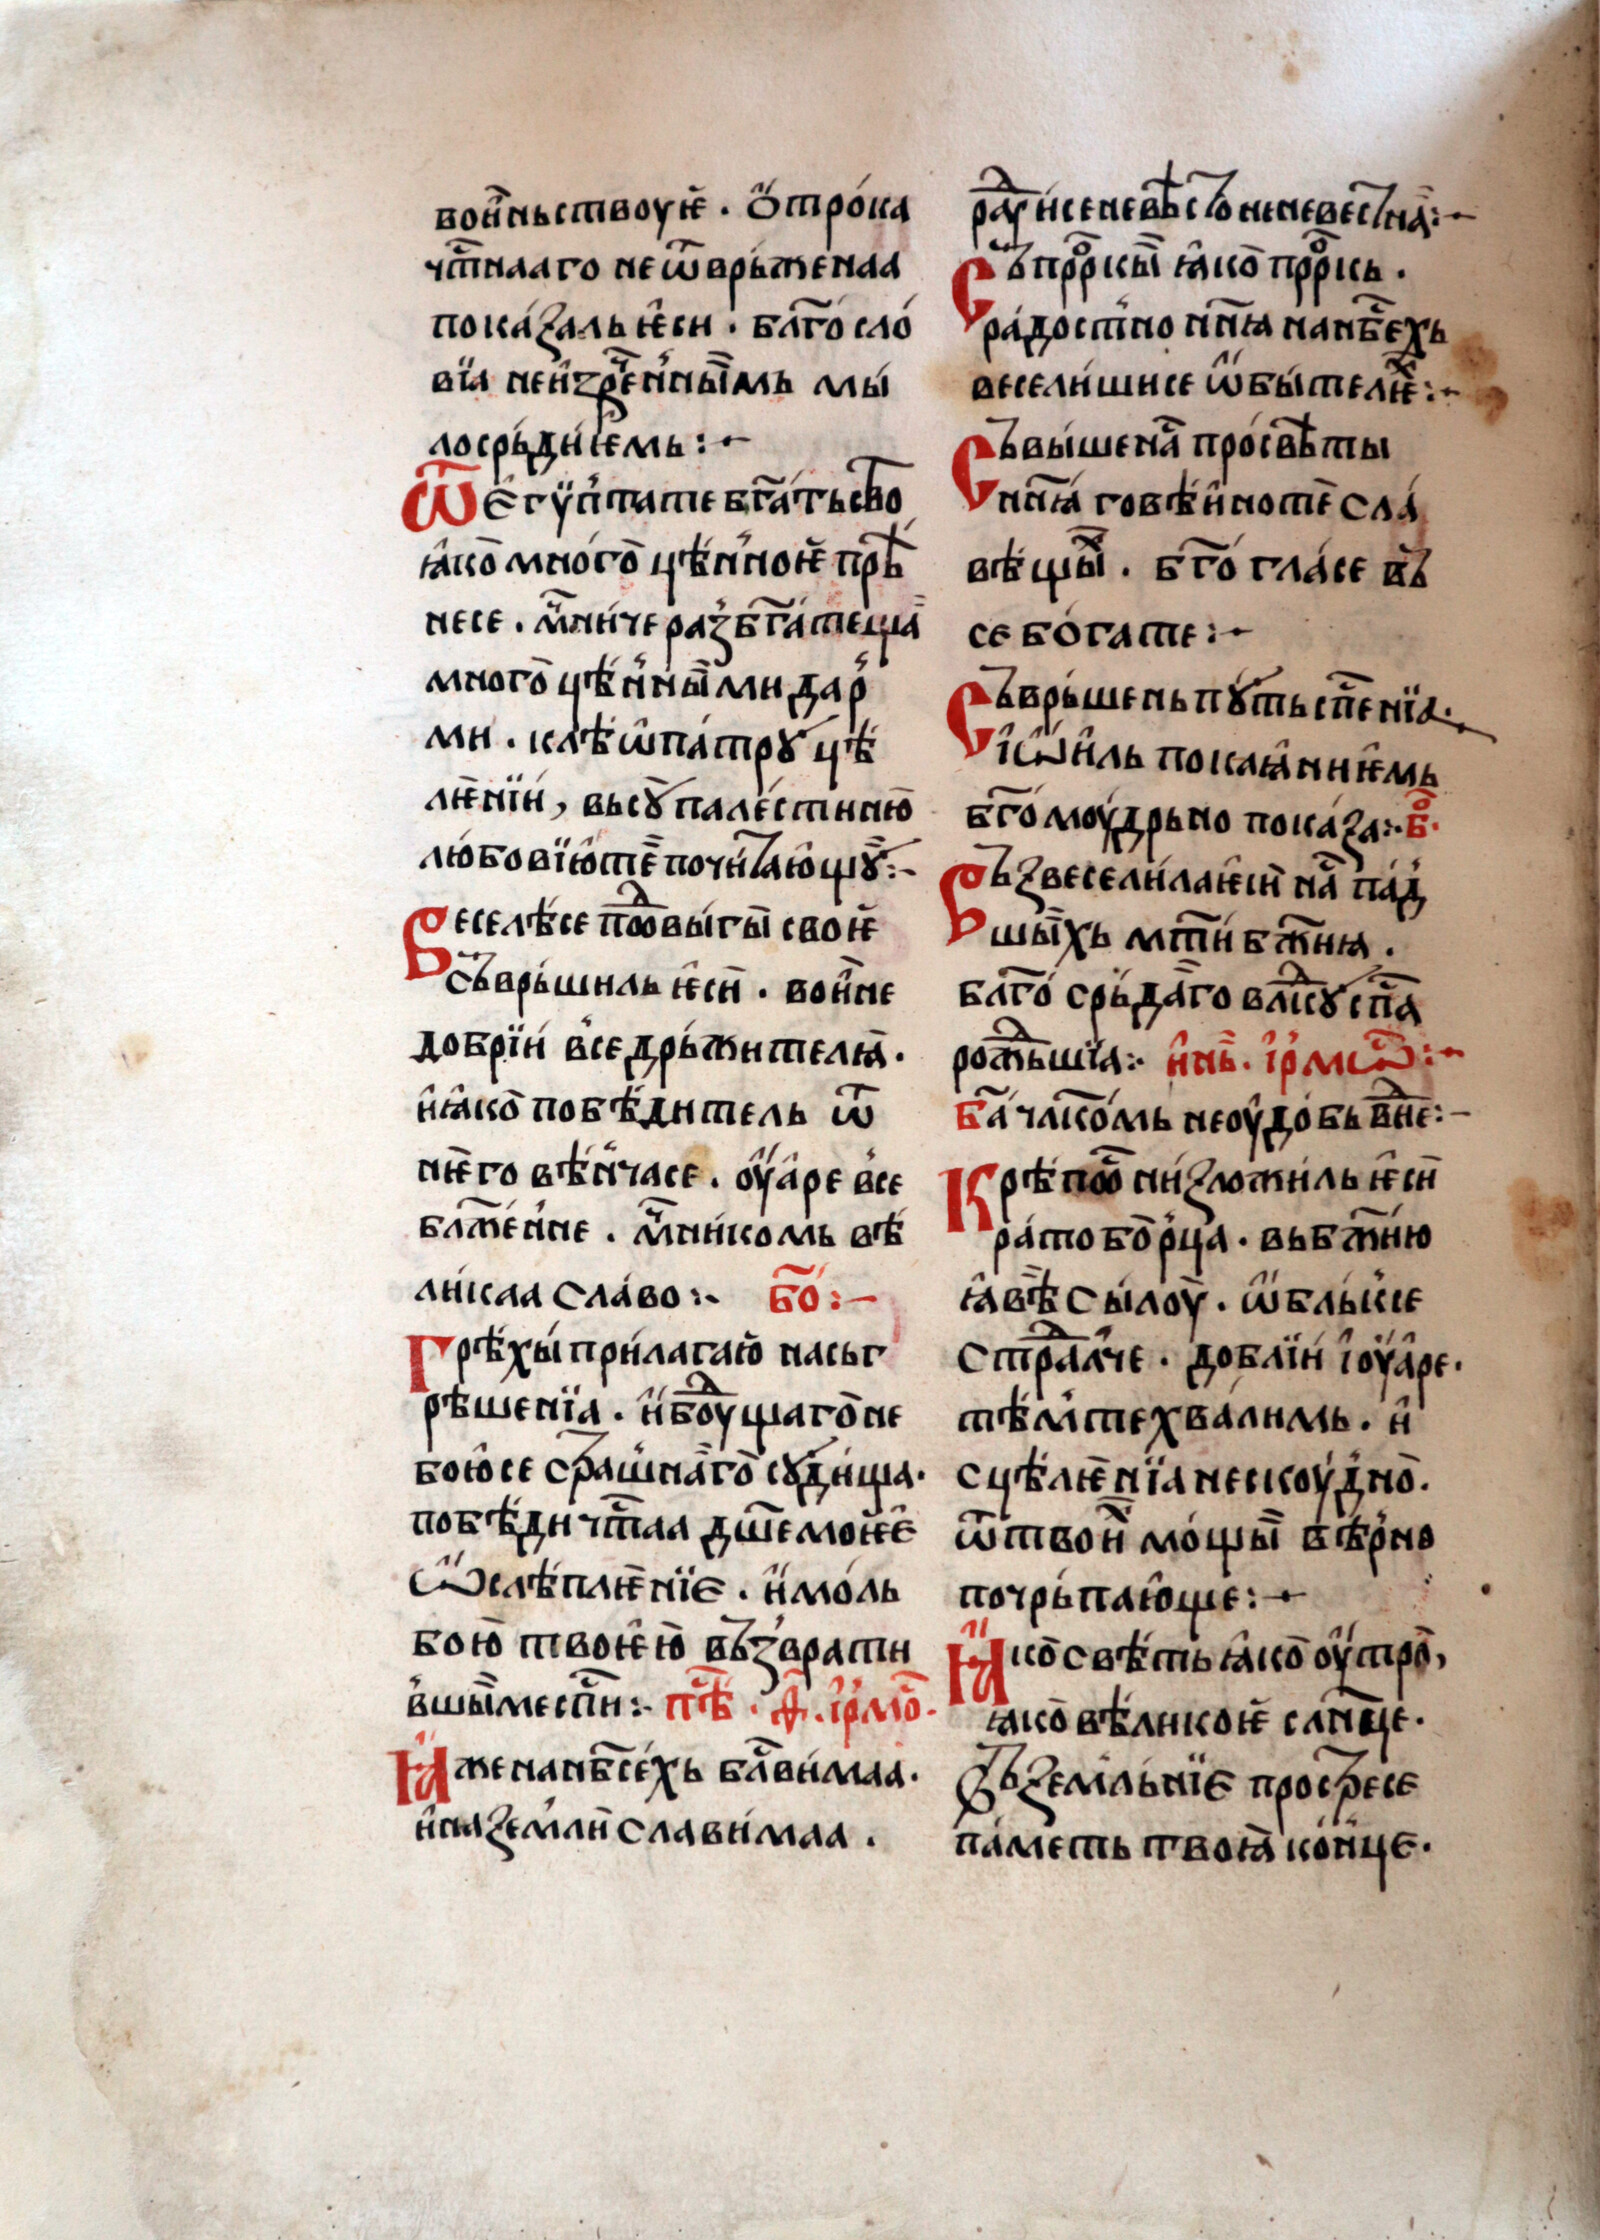 вои҆ньствоуѥ҆ . ѻ҆тро́ка
чт҃наа го неѿврь́женаа
пока́залъ ѥ҆си . бл҃го сло́
вїа неи҆зр҃е́ннꙑимь мы́
лосрь́дїѥмь :~
Ѿ є҆гѵ́пта те бг҃а́тьство
ꙗ҆ко мно́го цѣ́нноѥ прѣ
несе . мч҃ни́че раз̾бг҃а́теща
мно́го цѣ́ннꙑ́ми дар̾
ми . клѣѡпа́трꙋ цѣ
лѥ́нїи , въсꙋ̀ пале́стинꙋю
любовїю те почита́ющꙋ :~
Весели́ се по́двыгы своѥ̀
съврь́шиль ѥ҆сѝ . вои҆не
до́брїи вседрьжителꙗ .
и҆ ꙗ҆ко побѣ́дитель ѿ
нѥ́го вѣ́нча се . оу҆а́ре все
бл҃же́нне . мч҃ни́комь вѣ
ли́каа сла́во :~ бо҃ :~
Грѣ́хы прилага́ю на съг
рѣшенїа . и҆ бѹ́дꙋщаго не
бою̀ се страш́наго сꙋди́ща .
побѣ́ди чт҃аа дш҃е моѥѥ
ѡ҆слѣплѥ́нїе . и҆ мо́ль
бою̀ твоѥ́ю въз̾врати
вшꙑ ме сп҃и :~ пѣ҃ . ѳ҃ . і҆рмо .
Ꙗ҆же на нб҃се́хь бл҃ви́маа .
и҆ на землѝ слави́маа .
ра́дѹи се невѣ́сто неневе́стнаа :~
Съ пр҃рⷪ҇кы ꙗ҆ко пр҃рⷪ҇кь .
ра́достно нн҃ꙗ на нб҃сехь
весели́ши се ѡ҆бы́телѥⷯ :~
Съвы́шена просвѣ́ты
нн҃ꙗ говѣ́ино те сла́
вѣщыⷯ . бг҃о гла́се въ
се бо́гате :~
Съврь́шень пꙋ́ть сп҃се́нїа .
і҆ѡи҆ль покаꙗ́ниѥмь
бг҃о моу́дрьно пока́за :~ бⷪ҇ .
Възвесели́ла ѥ҆сѝ на па́д
шы́хь мт҃и бж҃иꙗ .
бл҃го срь́даго влⷣкꙋ сп҃са
ро́ждьшїа :~ и҆нь . і҆рмѡ :~
Ба҃ чл҃ко́мь неоу҆до́бь вⷣне :~
Крѣ́пко низложи́ль ѥ҆сѝ
ра́тобо́рца . вь бж҃ию
ꙗ҆вѣ̀ сы́лоу . ѡ҆бль́к се
страда́лче . до́блїи і҆ оу҆а́ре .
тѣ́мь те хва́лимь . и҆
сцѣлѥ́нїа нескоу́дно .
ѿ твоиⷯ мо́щы вѣ́рно
почрьпа́юще :~
Ꙗ҆ко свѣ́ть ꙗ҆ко оу҆тро ,
ꙗко вѣ́ликоѥ сл҃нце .
въ земльнїе простре се
па́меть твоꙗ̀ ко́нце .